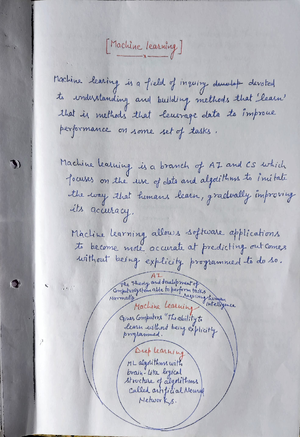 [Machine learning]
Machine leasing is a field of inquiry devoted
to understanding and building methods that 'learn'
that is methods that leverage data to improve
performance on some set of tasks.
Machine learning is a branch of AI and CS which
focuses on the use of data and algorithms to imitate
the way that humans learn, gradually improving
its accuracy.
Machine learning allows software applications
to become more accurate at predicting outcomes
without being explicity programmed to do so.
AI
The Theory and Development of
Computer System able to perform tasks
Normally requiring human
intelligence
Machine Learning
Gives Computers "The ability to
learn without being explicity
programmed.
Deep Learning
ML algorithms with
brain-like logical
structure of algorithms
Called artificial Neural
Networks.